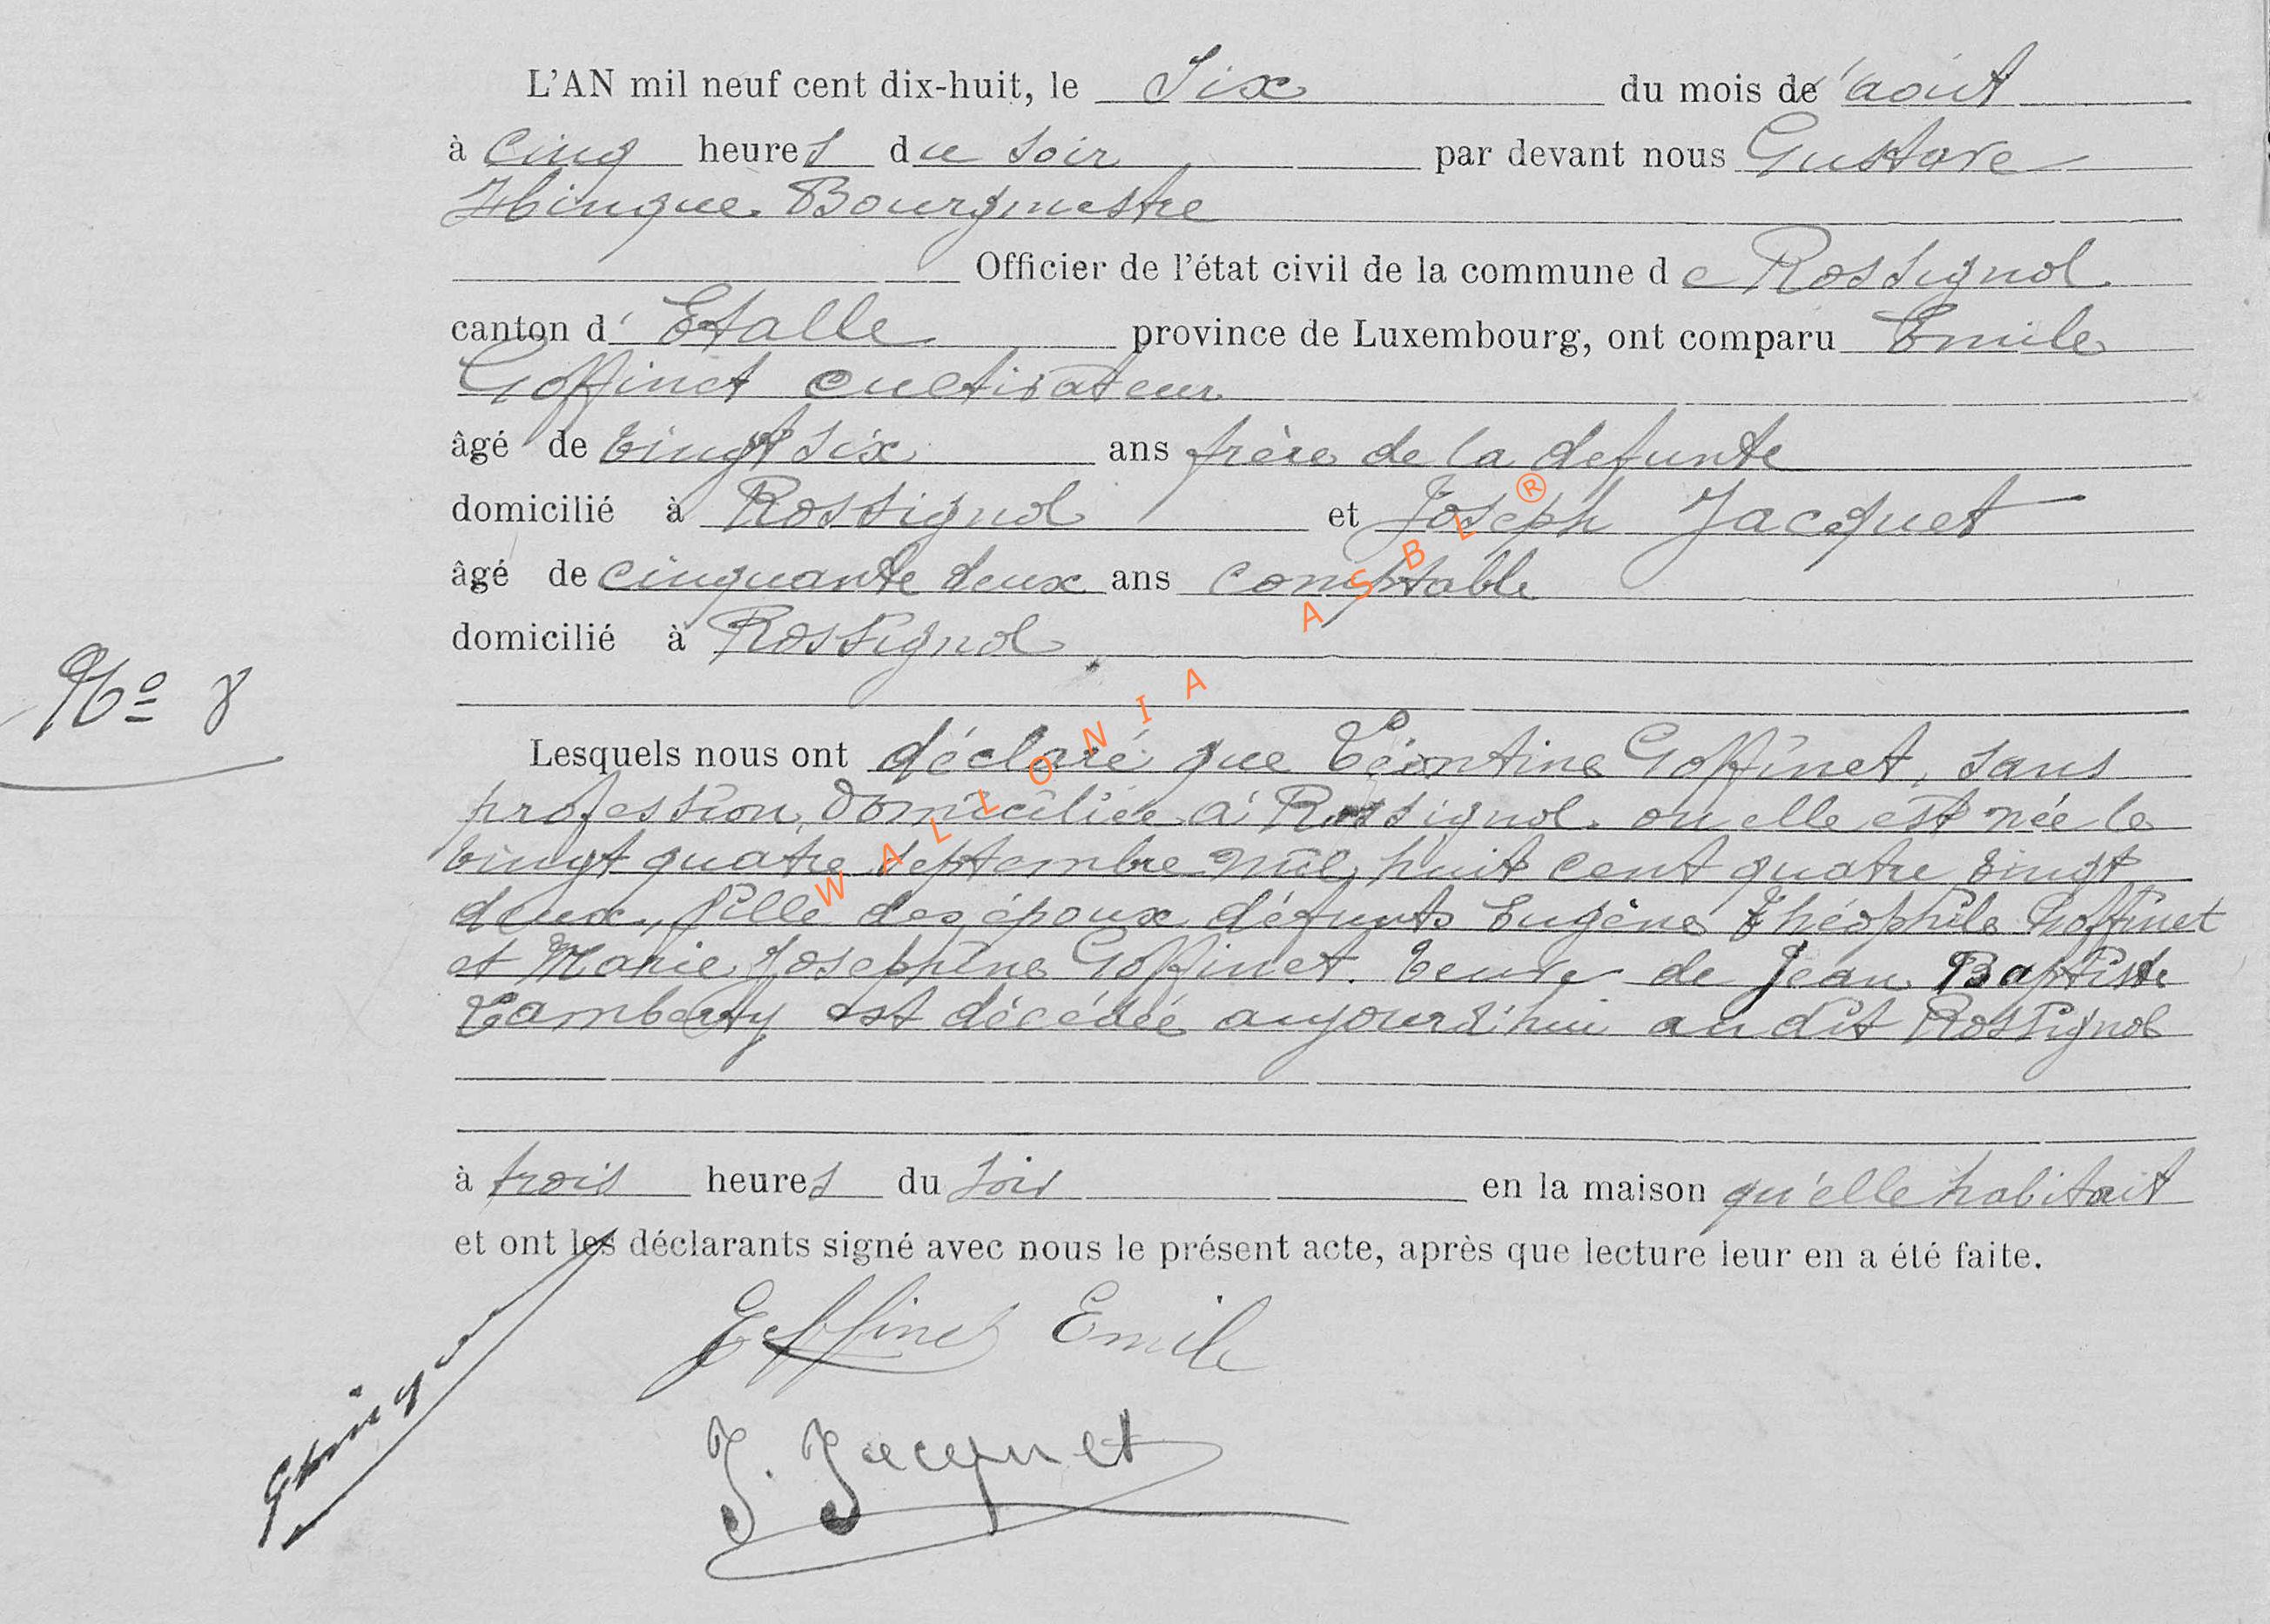 L'AN mil neuf cent dix-huit, le Six du mois de août
à cinq heures du soir par devant nous Gustave
Hinque Bourgmestre
Officier de l'état civil de la commune de Rossignol
canton d'Etalle province de Luxembourg, ont comparu Emile
Goffinet cultivateur
âgé de vingt six ans frère de la defunte
domicilié à Rossignol et Joseph Jacquet
âgé de cinquante deux ans comptable
domicilié à Rossignol
No 8
Lesquels nous ont déclaré que Léontine Goffinet, sans
profession, domiciliée à Rossignol où elle est née le
vingt quatre septembre mil huit cent quatre vingt
deux, fille des époux défunts Eugène Théophile Goffinet
et Marie Josephine Goffinet. Veuve de Jean Baptiste
Lamberty est décédée aujourd'hui au dit Rossignol
à trois heures du soir en la maison qu'elle habitait
et ont les déclarants signé avec nous le présent acte, après que lecture leur en a été faite.
Goffinet Emile
J. Jacquet
WALLONIA ASBL ®